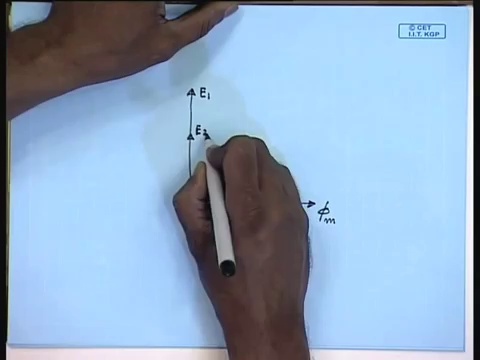 © CET
I.I.T. KGP
E₁
E₂
ϕₘ